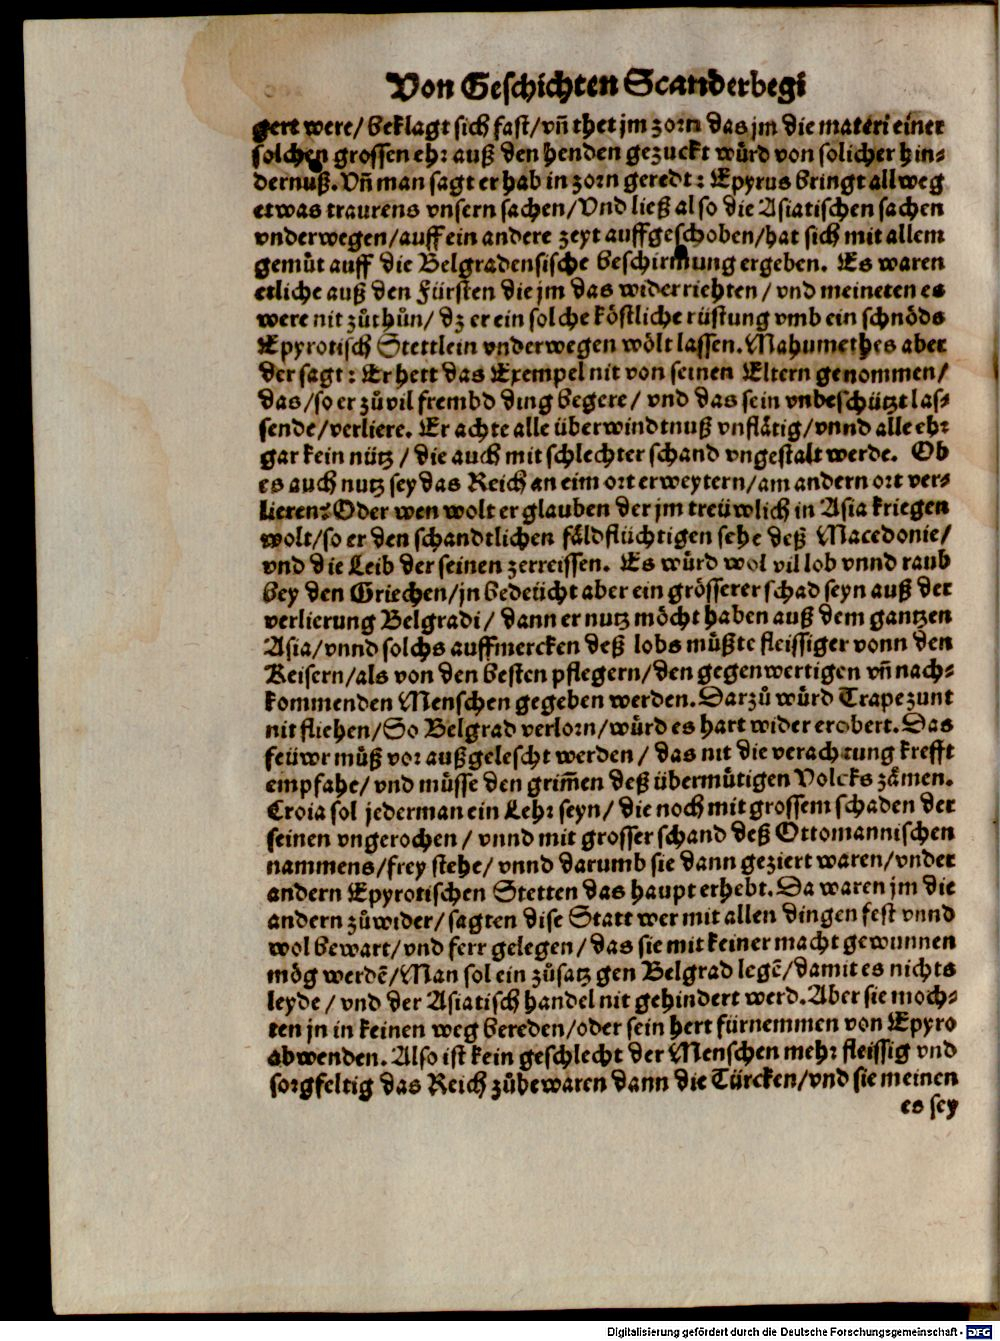 Von Geschichten Scanderbegi
gert were/ beklagt sich fast/ vñ thet jm zorn das jm die materi einer
solchen grossen ehr auß den henden gezuckt würd von solicher hin-
dernuß. Vñ man sagt er hab in zorn geredt: Epyrus bringt allweg
etwas traurens vnsern sachen/ Vnd ließ also die Asiatischen sachen
vnderwegen/ auff ein andere zeyt auffgeschoben/ hat sich mit allem
gemüt auff die Belgradensische beschirmung ergeben. Es waren
etliche auß den Fürsten die jm das widerriehten/ vnd meineten es
were nit zůthůn/ dz er ein solche köstliche rüstung vmb ein schnöds
Epyrotisch Stettlein vnderwegen wölt lassen. Mahumethes aber
der sagt: Er hett das Exempel nit von seinen Eltern genommen/
das/ so er zůvil frembd ding begere/ vnd das sein vnbeschützt las-
sende/ verliere. Er achte alle überwindtnuß vnflätig/ vnnd alle ehr
gar kein nütz/ die auch mit schlechter schand vngestalt werde. Ob
es auch nutz sey das Reich an eim ort erweytern/ am andern ort ver-
lieren? Oder wen wolt er glauben der jm treüwlich in Asia kriegen
wolt/ so er den schandtlichen fäldflüchtigen sehe deß Macedonie/
vnd die Leib der seinen zerreissen. Es würd wol vil lob vnnd raub
bey den Griechen/ jn bedeücht aber ein grösserer schad seyn auß der
verlierung Belgradi/ dann er nutz möcht haben auß dem gantzen
Asia/ vnnd solchs auffmercken deß lobs müßte fleissiger vonn den
Keisern/ als von den besten pflegern/ den gegenwertigen vñ nach-
kommenden Menschen gegeben werden. Darzů würd Trapezunt
nit fliehen/ So Belgrad verlorn/ würd es hart wider erobert. Das
feüwr müß vor außgelescht werden/ das nit die verachtung krefft
empfahe/ vnd müsse den grim̃en deß übermütigen Volcks zämen.
Croia sol jederman ein Lehr seyn/ die noch mit grossem schaden der
seinen vngerochen/ vnnd mit grosser schand deß Ottomannischen
nammens/ frey stehe/ vnnd darumb sie dann geziert waren/ vnder
andern Epyrotischen Stetten das haupt erhebt. Da waren jm die
andern zůwider/ sagten dise Statt wer mit allen dingen fest vnnd
wol bewart/ vnd ferr gelegen/ das sie mit keiner macht gewunnen
mög werdẽ/ Man sol ein zůsatz gen Belgrad legẽ/ damit es nichts
leyde/ vnd der Asiatisch handel nit gehindert werd. Aber sie moch-
ten jn in keinen weg bereden/ oder sein hert fürnemmen von Epyro
abwenden. Also ist kein geschlecht der Menschen mehr fleissig vnd
sorgfeltig das Reich zůbewaren dann die Türcken/ vnd sie meinen
es sey
Digitalisierung gefördert durch die Deutsche Forschungsgemeinschaft - DFG